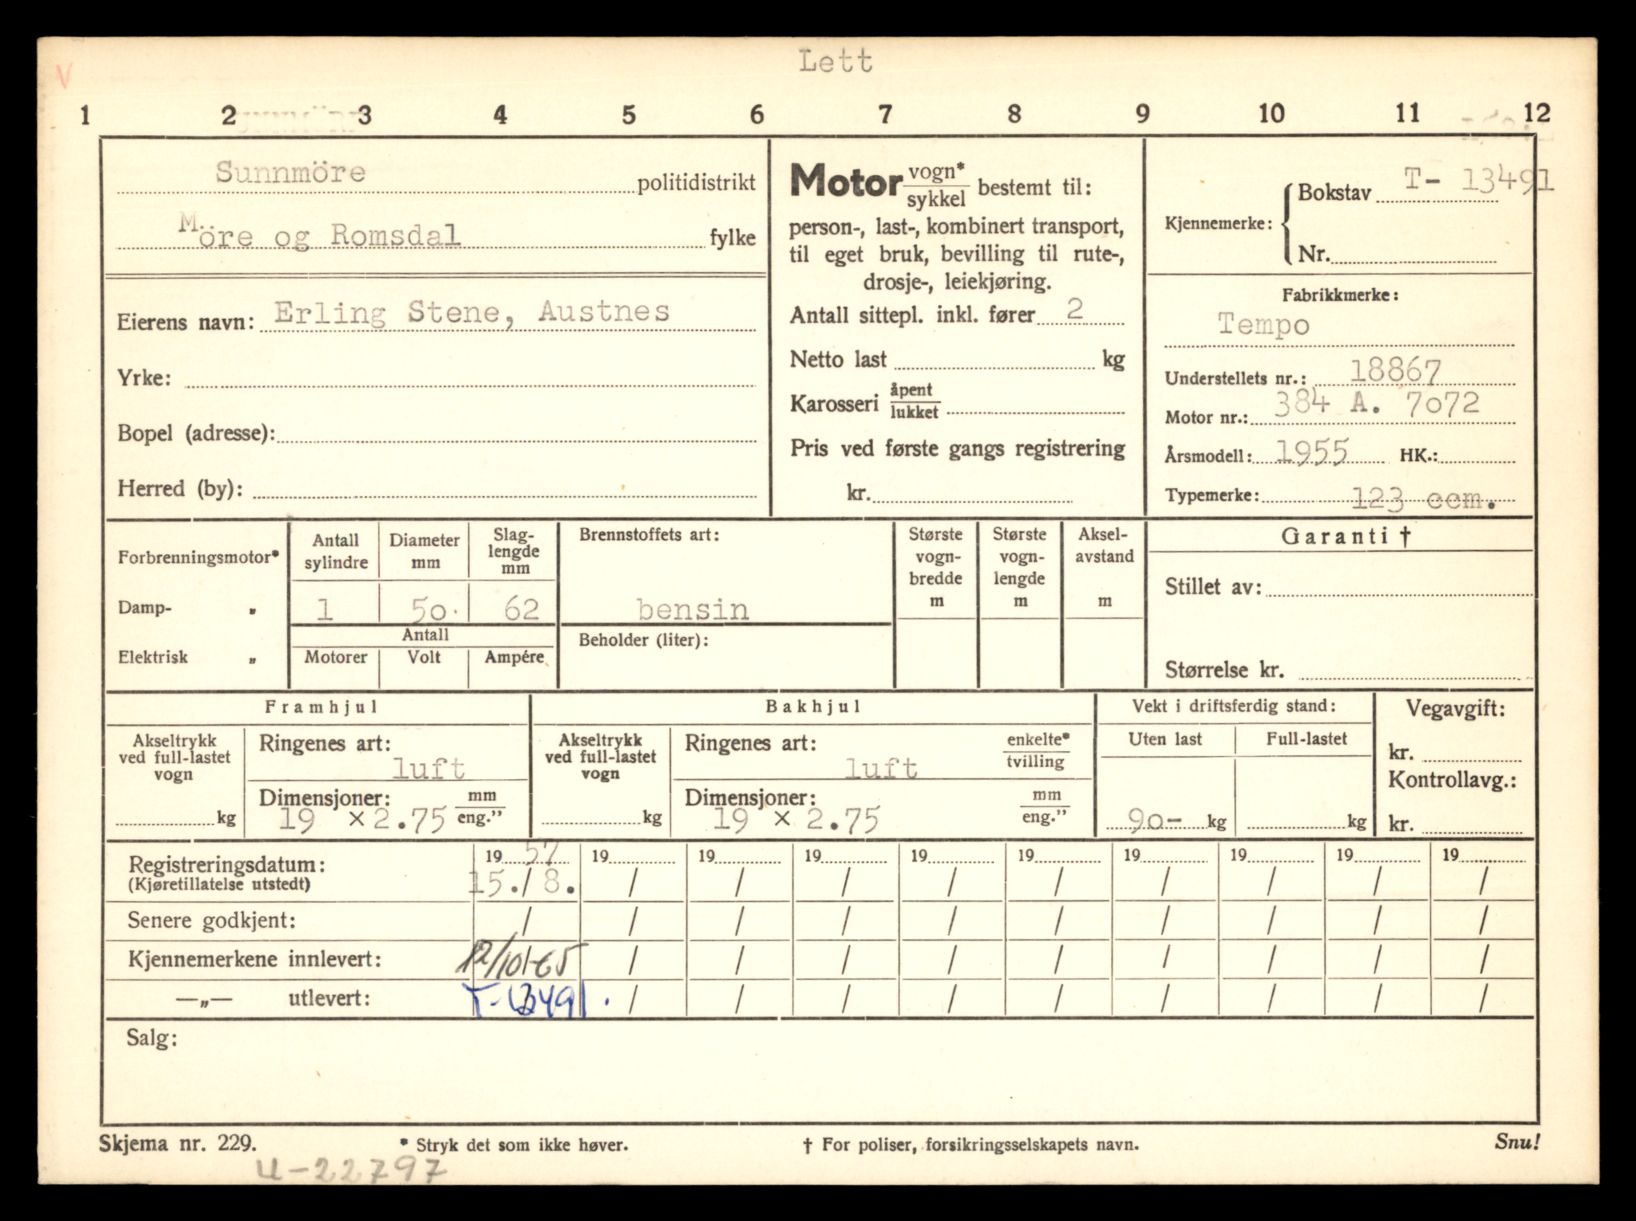 Lett
V
1 2 3 4 5 6 7 8 9 10 11 12
Sunnmöre politidistrikt
Möre og Romsdal fylke
Eierens navn: Erling Stene, Austnes
Yrke:
Bopel (adresse):
Herred (by):
Motor vogn* / sykkel bestemt til:
person-, last-, kombinert transport,
til eget bruk, bevilling til rute-,
drosje-, leiekjøring.
Antall sittepl. inkl. fører 2
Netto last kg
Karosseri åpent / lukket
Pris ved første gangs registrering
kr.
Kjennemerke: Bokstav T- 13491
Nr.
Fabrikkmerke:
Tempo
Understellets nr.: 18867
Motor nr.: 384 A. 7072
Årsmodell: 1955 HK.:
Typemerke: 123 ccm.
Forbrenningsmotor*
Damp- „
Elektrisk „
Antall sylindre
Diameter mm
Slag-lengde mm
1 50. 62
Antall
Motorer Volt Ampére
Brennstoffets art:
bensin
Beholder (liter):
Største vogn-bredde m
Største vogn-lengde m
Aksel-avstand m
Garanti †
Stillet av:
Størrelse kr.
Framhjul
Akseltrykk
ved full-lastet
vogn
kg
Ringenes art:
luft
Dimensjoner: mm / eng."
19 × 2.75
Bakhjul
Akseltrykk
ved full-lastet
vogn
kg
Ringenes art: enkelte* / tvilling
luft
Dimensjoner: mm / eng."
19 × 2.75
Vekt i driftsferdig stand:
Uten last Full-lastet
90- kg kg
Vegavgift:
kr.
Kontrollavg.:
kr.
Registreringsdatum: 19 57 19 19 19 19 19 19 19 19 19
(Kjøretillatelse utstedt) 15./8. / / / / / / / / /
Senere godkjent: / / / / / / / / / /
Kjennemerkene innlevert: 12/10-65 / / / / / / / / /
—„— utlevert: T-13491. / / / / / / / / /
Salg:
Skjema nr. 229. * Stryk det som ikke høver. † For poliser, forsikringsselskapets navn. Snu!
U-22797